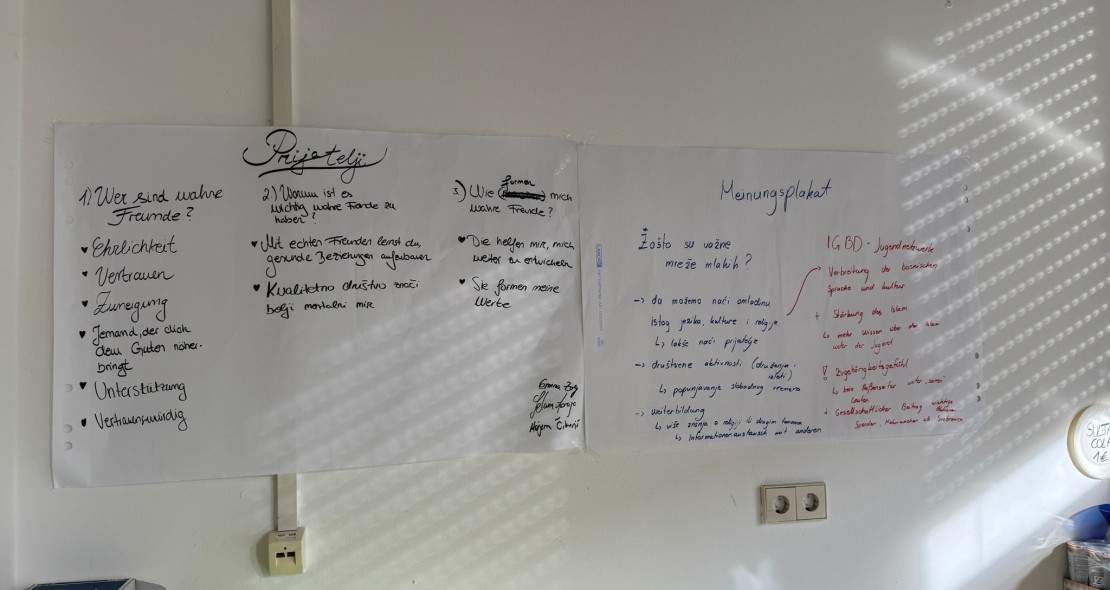 Prijatelji
1) Wer sind wahre
Freunde?
♥ Ehrlichkeit
♥ Vertrauen
♥ Zuneigung
♥ Jemand, der dich
dem Guten näher-
bringt
♥ Unterstützung
♥ Vertrauenswürdig
2.) Warum ist es
wichtig wahre Freunde zu
haben?
♥ Mit echten Freunden lernst du,
gesunde Beziehungen aufzubauen
♥ Kvalitetno društvo znači
bolji mentalni mir
3) Wie formen mich
wahre Freunde?
♥ Die helfen mir, mich
weiter zu entwickeln
♥ Sie formen meine
Werte
Meinungsplakat
Zašto su važne
mreže mladih?
-> da možemo naći omladinu
istog jezika, kulture i religije
↳ lakše naći prijatelje
-> društvene aktivnosti (druženja,
izleti)
↳ popunjavanje slobodnog vremena
-> weiterbildung
↳ više znanja o religiji ili drugim temama
↳ Informationenaustausch mit anderen
IGBD - Jugendnetzwerke
Verbreitung der bosnischen
Sprache und kultur
+ Stärkung des Islam
↳ mehr Wissen über den Islam
unter der Jugend
! Zugehörigkeitsgefühl
↳ kein Außenseiter unter
Leuten
+ Gesellschaftlicher Beitrag
Spenden
SULTAN
COLA
1€